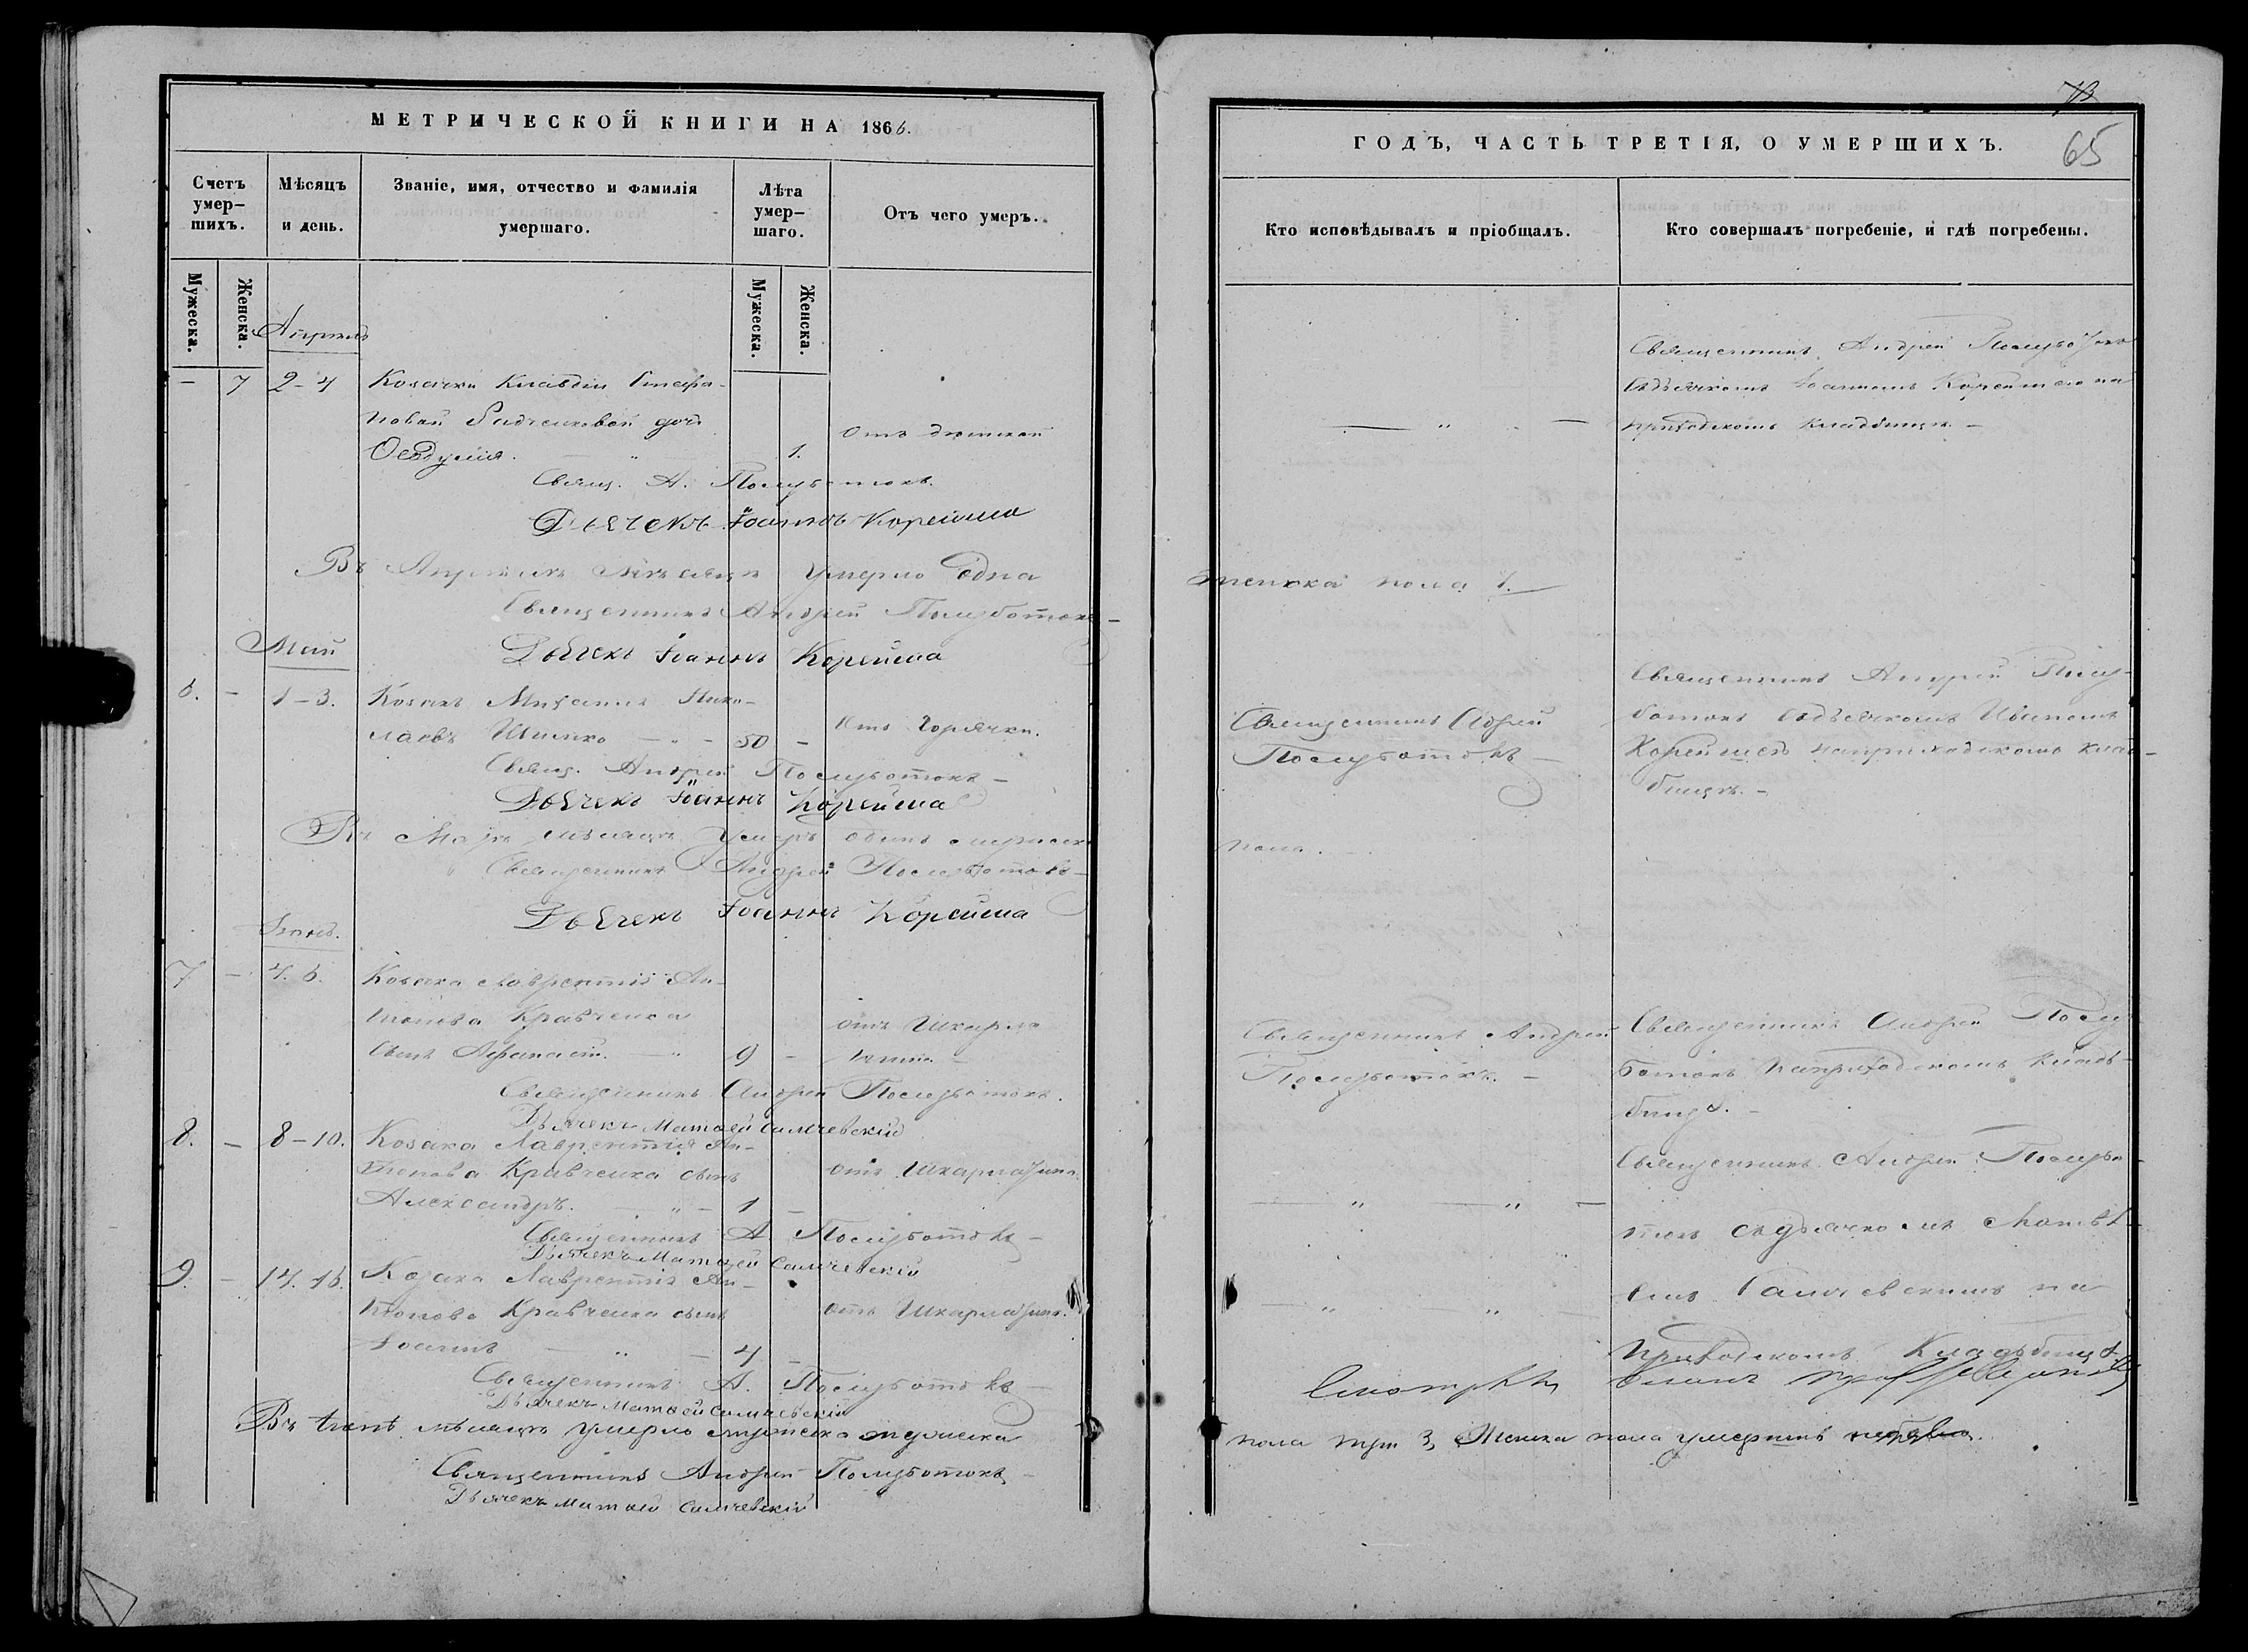 МЕТРИЧЕСКОЙ КНИГИ НА 1866.
Счетъ умер–шихъ.
Мѣсяцъ и день.
Званіе, имя, отчество и фамилія умершаго.
Лѣта умер–шаго.
Отъ чего умеръ.
Мужеска.
Женска.
Мужеска.
Женска.
Апрѣль
– 7 2–4 Козачки Клавдіи Стефа-
новой дочь
Евдукія. – „ 1.
Отъ дѣтской
Свящ. А. Полуботокъ.
Дьячекъ Іоаннъ Корейша
Въ Апрѣлѣ мѣсяцѣ умерло одна
Священникъ Андрей Полуботокъ –
Дьячекъ Іоаннъ Корейша
Май
6. – 1–3. Козакъ Михаилъ Нико-
лаевъ Шимко – „ – 50 –
Отъ Горячки.
Свящ. Андрей Полуботокъ –
Дьячекъ Іоаннъ Корейша
Въ Маѣ мѣсяцѣ умеръ одинъ мужеск.
Священникъ Андрей Полуботокъ –
Дьячекъ Іоаннъ Корейша
Іюнь.
7 – 4. 6. Козака Лаврентія Ан-
тонова Кравченка
сынъ Афанасій. – „ 9 –
отъ Шкарла
тины –
Священникъ Андрей Полуботокъ.
Дьячекъ Матѳей Самчевскій
8. – 8–10. Козака Лаврентія Ан-
тонова Кравченка сынъ
Александръ. – „ – 1 –
отъ Шкарлатины
Священникъ А. Полуботокъ –
Дьячекъ Матѳей Самчевскій
9. – 14. 16. Козака Лаврентія Ан-
тонова Кравченка сынъ
Іоаннъ – „ – 4 –
отъ Шкарлатины.
Священникъ А. Полуботокъ –
Дьячекъ Матѳей Самчевскій
Въ Іюнѣ мѣсяцѣ умерло мужеска
Священникъ Андрей Полуботокъ –
Дьячекъ Матѳей Самчевскій
65
ГОДЪ, ЧАСТЬ ТРЕТІЯ, О УМЕРШИХЪ.
Кто исповѣдывалъ и пріобщалъ.
Кто совершалъ погребеніе, и гдѣ погребены.
Священникъ Андрей Полуботокъ
съ дьячкомъ Іоанномъ Корейшею на
приходскомъ кладбищѣ. –
женска пола 1.
Священникъ Андрей
Полуботокъ –
Священникъ Андрей Полу-
ботокъ съ дьячкомъ Иваномъ
Корейшею на приходскомъ клад-
бищѣ. –
пола. –
Священникъ Андрей
Полуботокъ. –
Священникъ Андрей Полу-
ботокъ на приходскомъ клад-
бищѣ. –
Священникъ Андрей Полубо-
токъ съ дьячкомъ Матвѣ-
емъ Самчевскимъ на
приходскомъ Кладбищѣ
Смотрѣлъ
пола три 3, Женска пола умершихъ